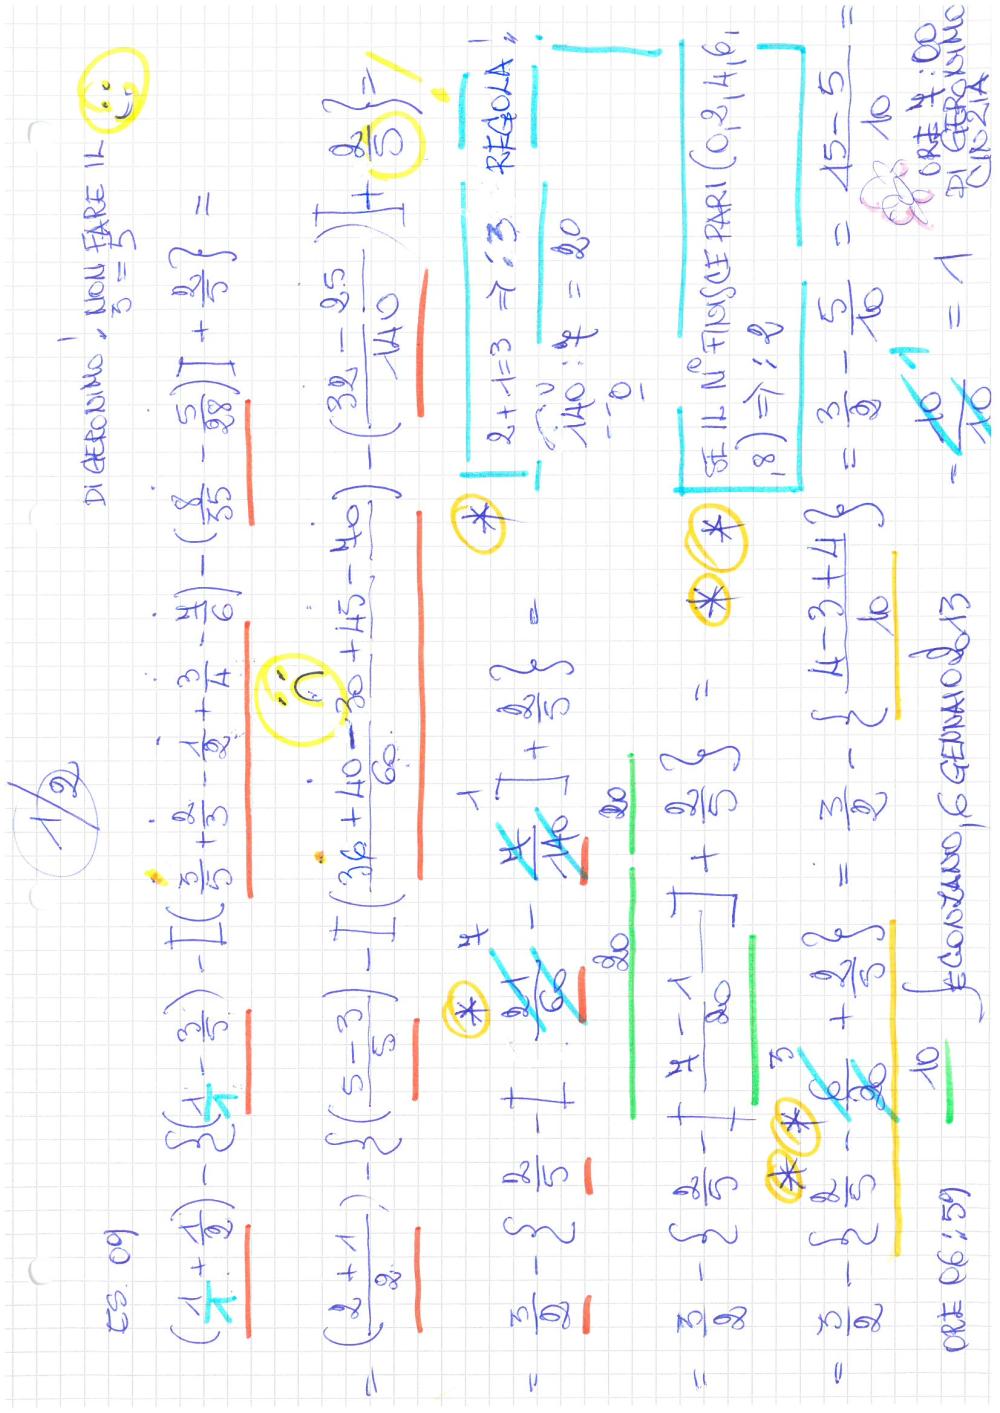 1/2
DI GERONIMO, NON FARE IL
3 = 5
ES. 09
(1/1 + 1/2) - {(1/1 - 3/5) - [(3/5 + 2/3 - 1/2 + 3/4 - 7/6) - (8/35 - 5/28)] + 2/5} =
= (2+1/2) - {(5-3/5) - [(36+40-30+45-70/60) - (32-25/140)] + 2/5} =
= 3/2 - {2/5 - [21/60 - 7/140] + 2/5} =
7 1
20 20
* 2+1=3 => :3 REGOLA!
140:7 = 20
-0
= 3/2 - {2/5 - [7-1/20] + 2/5} =
** SE IL N° FINISCE PARI (0,2,4,6,
,8) => :2
= 3/2 - {2/5 - 6/20 + 2/5} = 3/2 - {4-3+4/10} = 3/2 - 5/10 = 15-5/10 =
3
10
= 10/10 = 1
1
ORE 06:59
GONZANO, 6 GENNAIO 2013
ORE 7:00
DI GERONIMO
CINZIA